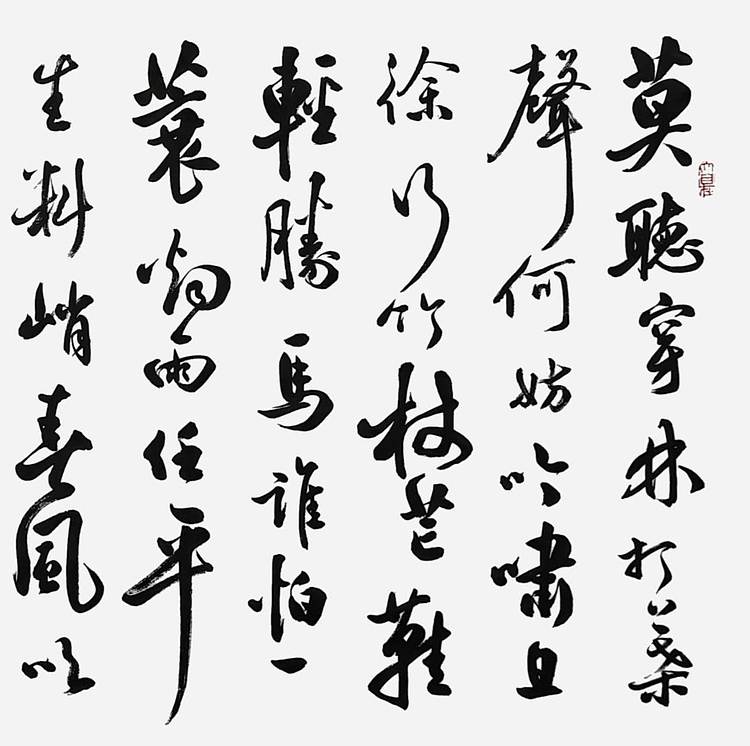 莫聽穿林打葉
聲何妨吟嘯且
徐行竹杖芒鞋
輕勝馬誰怕一
蓑烟雨任平
生料峭春風吹